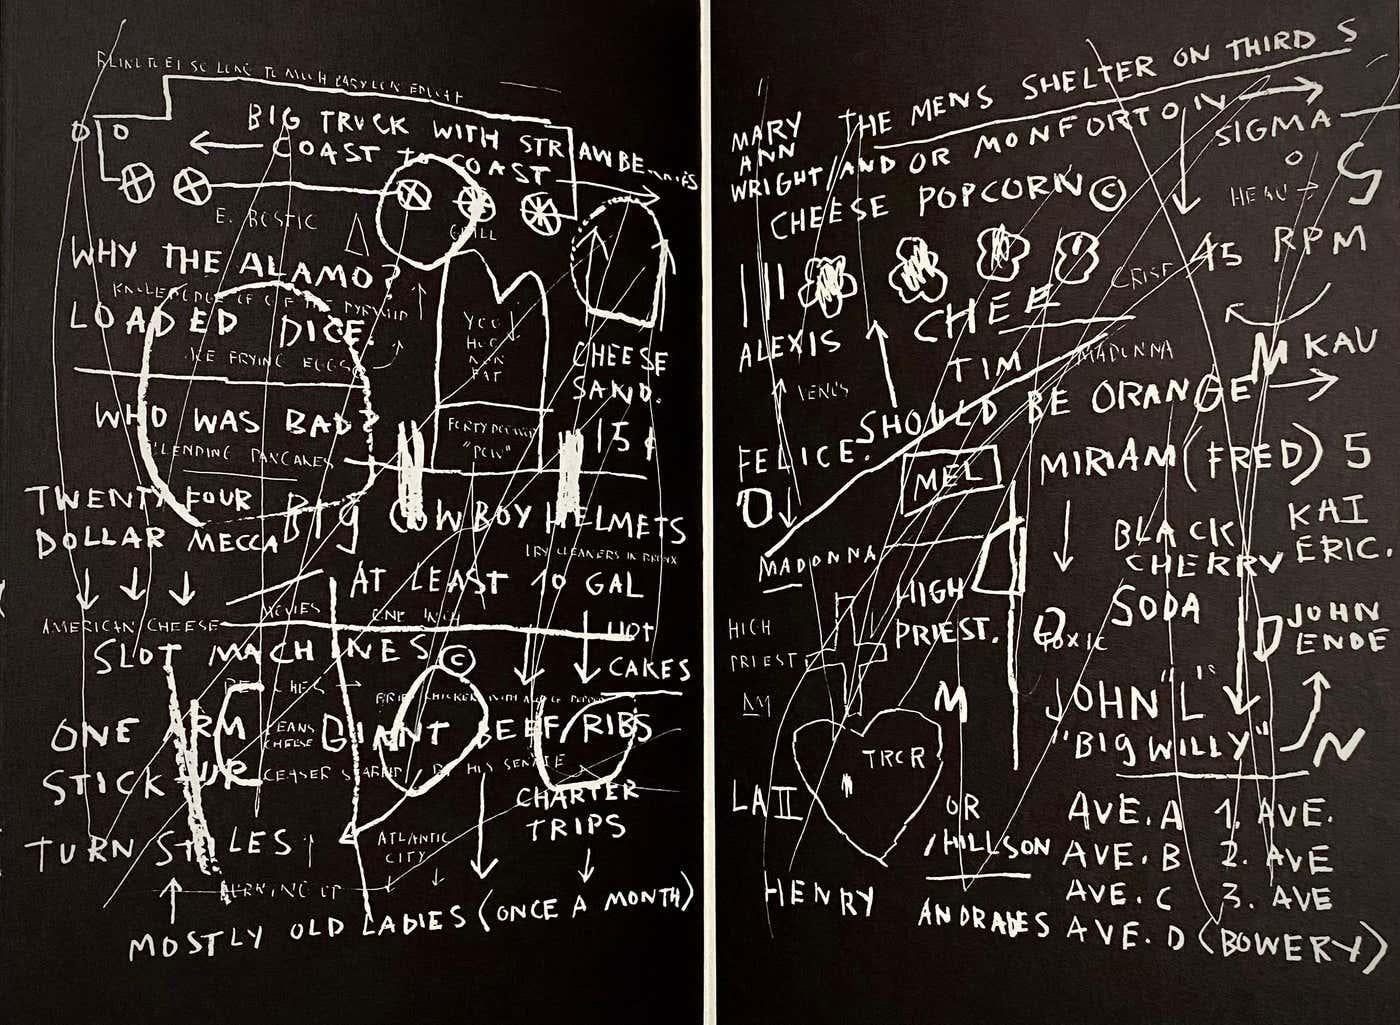 BIG TRUCK WITH STRAWBERRIES
COAST TO COAST
E. BOSTIC
GRILL
WHY THE ALAMO?
KNOWLEDGE OF THE PYRAMID
LOADED DICE.
ICE FRYING EGGS
WHO WAS BAD?
LENDING PANCAKES
CHEESE
SAND.
15¢
TWENTY FOUR
DOLLAR MECCA
BIG COWBOY HELMETS
DRY CLEANERS IN BRONX
AT LEAST 10 GAL
MOVIES
ONE INCH
AMERICAN CHEESE
HOT
CAKES
SLOT MACHINES ©
ONE ARM
STICK UP
BEANS
CHEESE
GIANT BEEF/RIBS
CEASER
BY HIS SENATE
CHARTER
TRIPS
TURN STILES
ATLANTIC
CITY
BURNING UP
MOSTLY OLD LADIES (ONCE A MONTH)
THE MENS SHELTER ON THIRD S
MARY
ANN
WRIGHT/AND OR MONFORTON
SIGMA
O
S
HEAD
CHEESE POPCORN ©
45 RPM
CHEE
ALEXIS
VENUS
TIM
MADONNA
M KAU
SHOULD BE ORANGE
FELICE.
O
MEL
MIRIAM (FRED) 5
KAI
ERIC.
BLACK
CHERRY
SODA
MADONNA
HIGH
PRIEST.
HIGH
PRIEST
AM
TOXIC
D JOHN
ENDE
M
JOHN "L"
"BIG WILLY"
N
TRCR
LA II
OR
/HILLSON
HENRY
ANDRADES
AVE. A 1. AVE.
AVE. B 2. AVE
AVE. C 3. AVE
AVE. D (BOWERY)